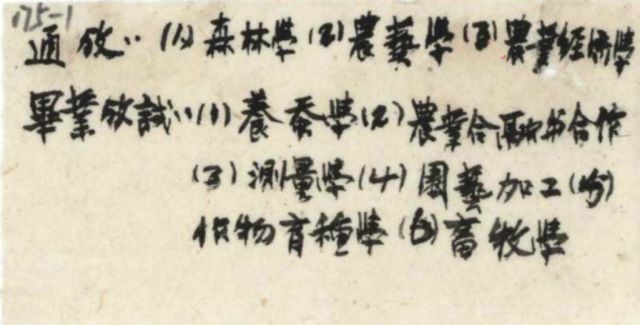 175-1
通攷:(1)森林學(2)農藝學(3)農業經濟學
畢業攷試:(1)養蚕學(2)農業合作
(3)測量學(4)園藝加工(5)
作物育種學(6)畜牧學